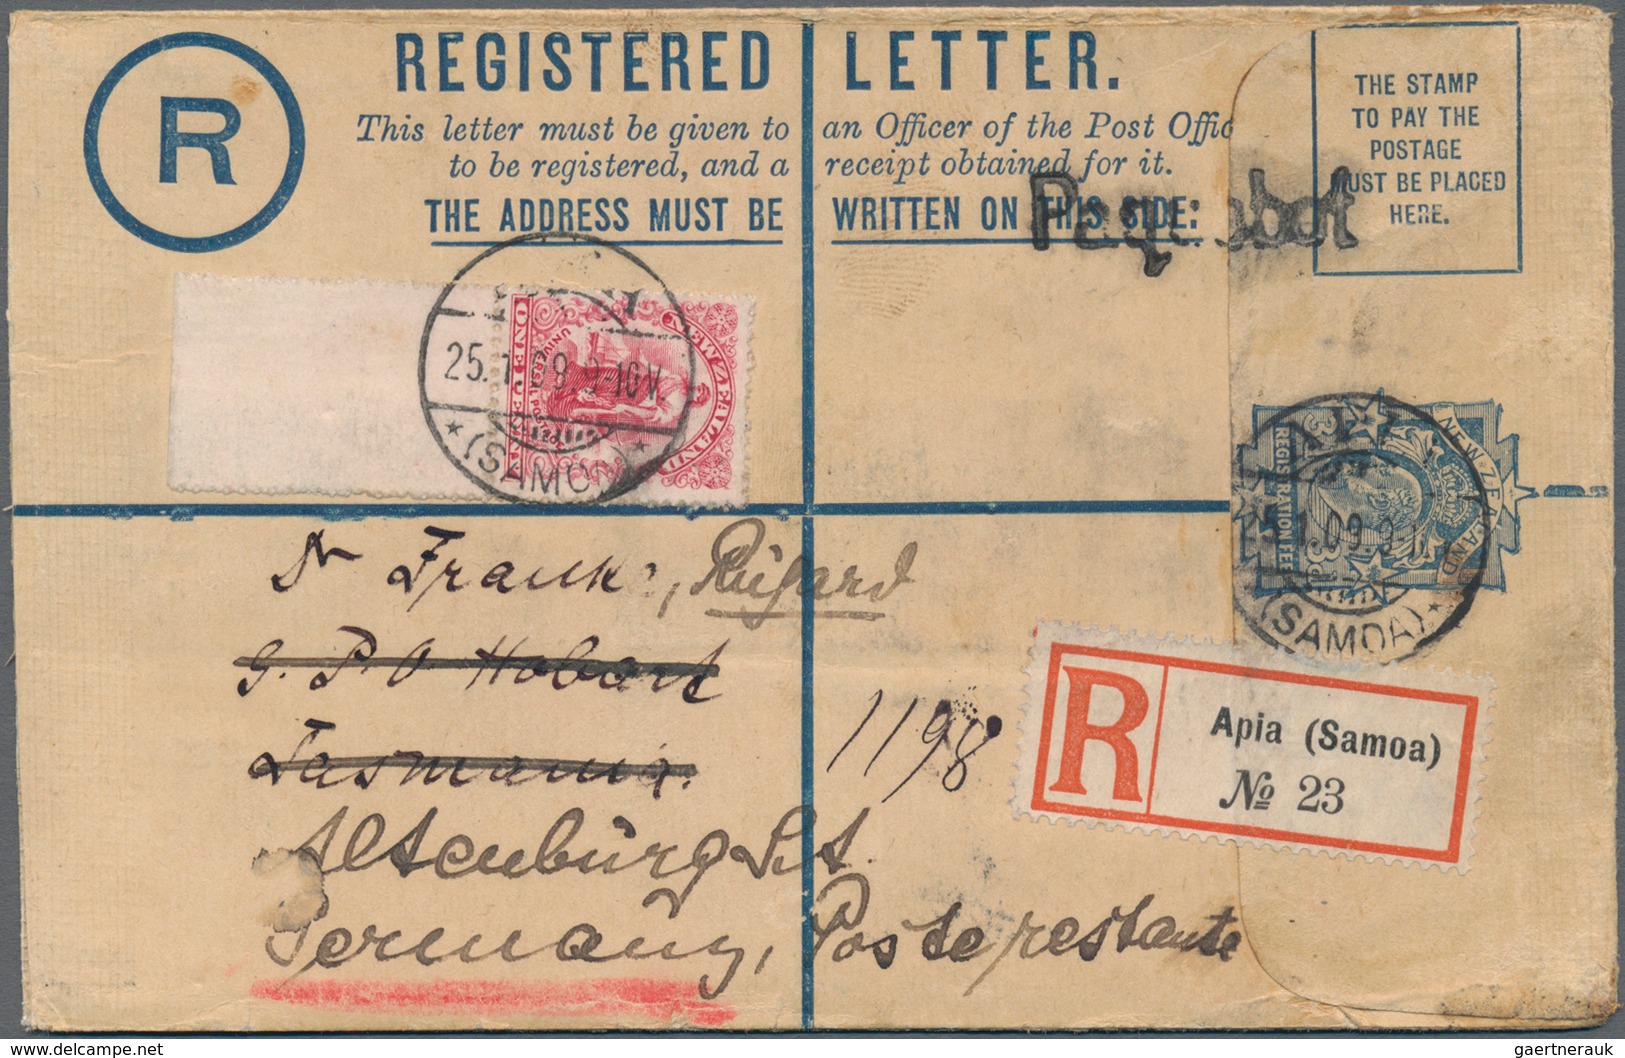 R
REGISTERED LETTER.
This letter must be given to an Officer of the Post Offic
to be registered, and a receipt obtained for it.
THE ADDRESS MUST BE WRITTEN ON THIS SIDE:
THE STAMP
TO PAY THE
POSTAGE
MUST BE PLACED
HERE.
Paquebot
25.1.09.9-10V.
(SAMOA)
NEW ZEALAND
UNIVERSAL POSTAGE
APIA
25.1.09.9
(SAMOA)
NEW ZEALAND
REGISTRATION FEE
Dr Frank,
G.P.O Hobart
Tasmania.
1198
R
Apia (Samoa)
№ 23
Altenburg S.A.
Germany, Poste restante
delcampe.net
gaertnerauk